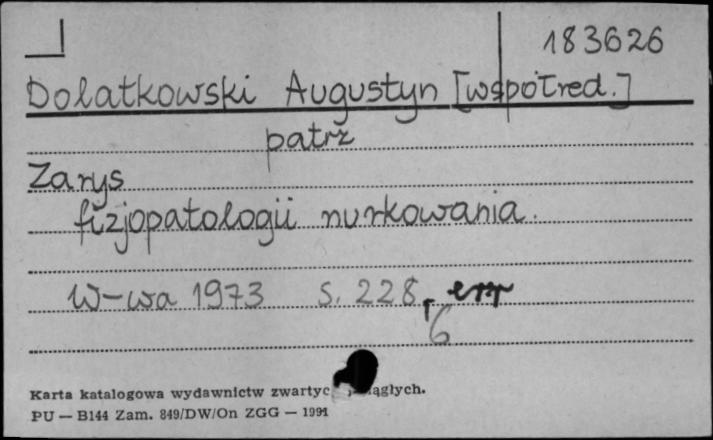 183626
Dolatkowski Augustyn [współred.]
patrz
Zarys
fizjopatologii nurkowania.
W-wa 1973 s. 228, err
6
Karta katalogowa wydawnictw zwartyc ągłych.
PU — B144 Zam. 849/DW/On ZGG — 1991